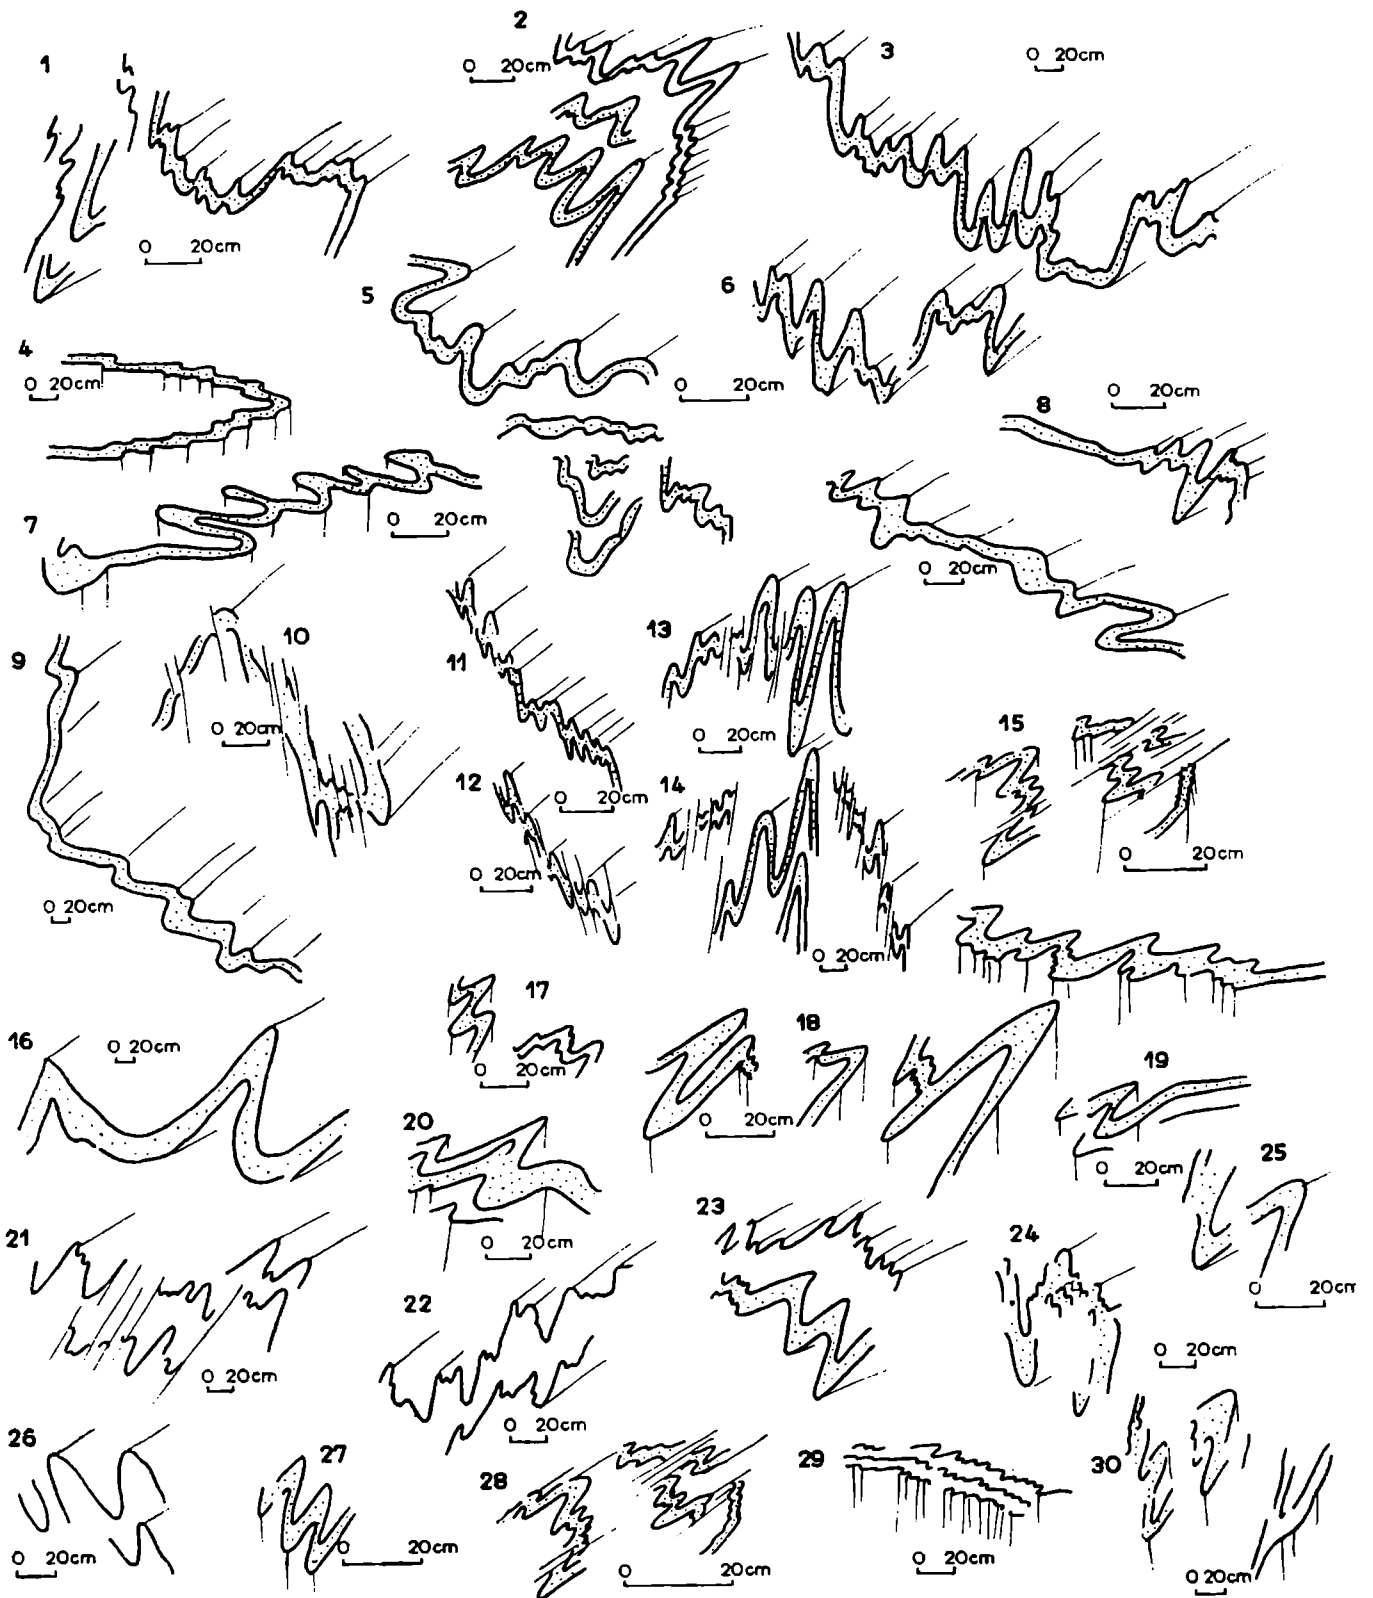 1
0 20cm
2
0 20cm
3
0 20cm
4
0 20cm
5
0 20cm
6
0 20cm
7
0 20cm
8
0 20cm
9
0 20cm
10
0 20cm
11
0 20cm
12
0 20cm
13
0 20cm
14
0 20cm
15
0 20cm
16
0 20cm
17
0 20cm
18
0 20cm
19
0 20cm
20
0 20cm
21
0 20cm
22
0 20cm
23
24
0 20cm
25
0 20cm
26
0 20cm
27
0 20cm
28
0 20cm
29
0 20cm
30
0 20cm